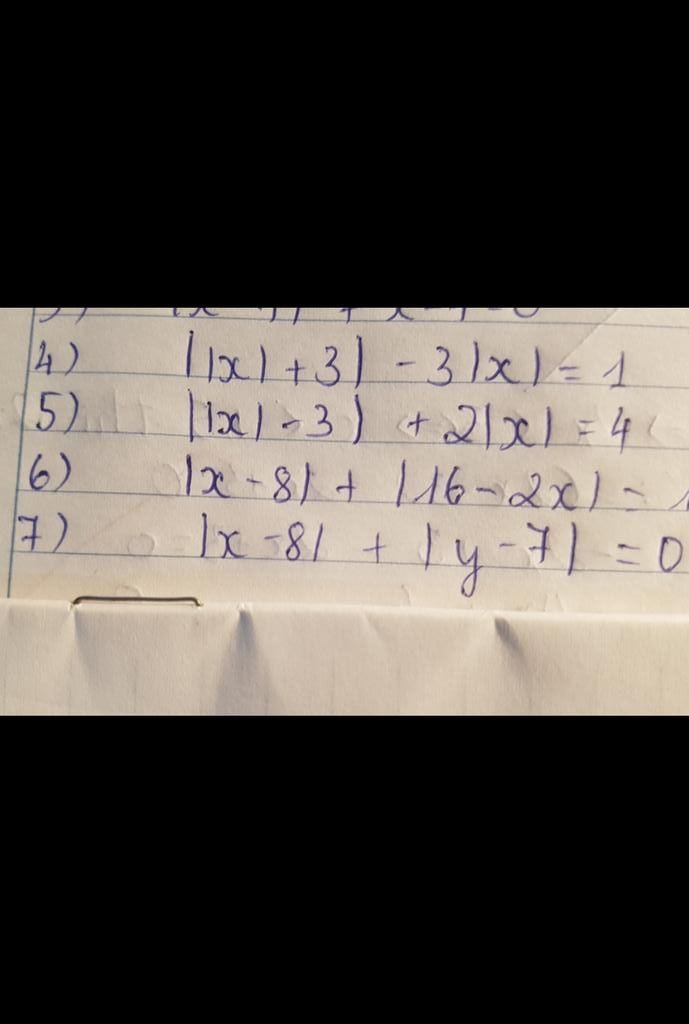 4) ||x|+3| - 3|x| = 1
5) ||x|-3| + 2|x| = 4
6) |x-8| + |16-2x| =
7) |x-8| + |y-7| = 0